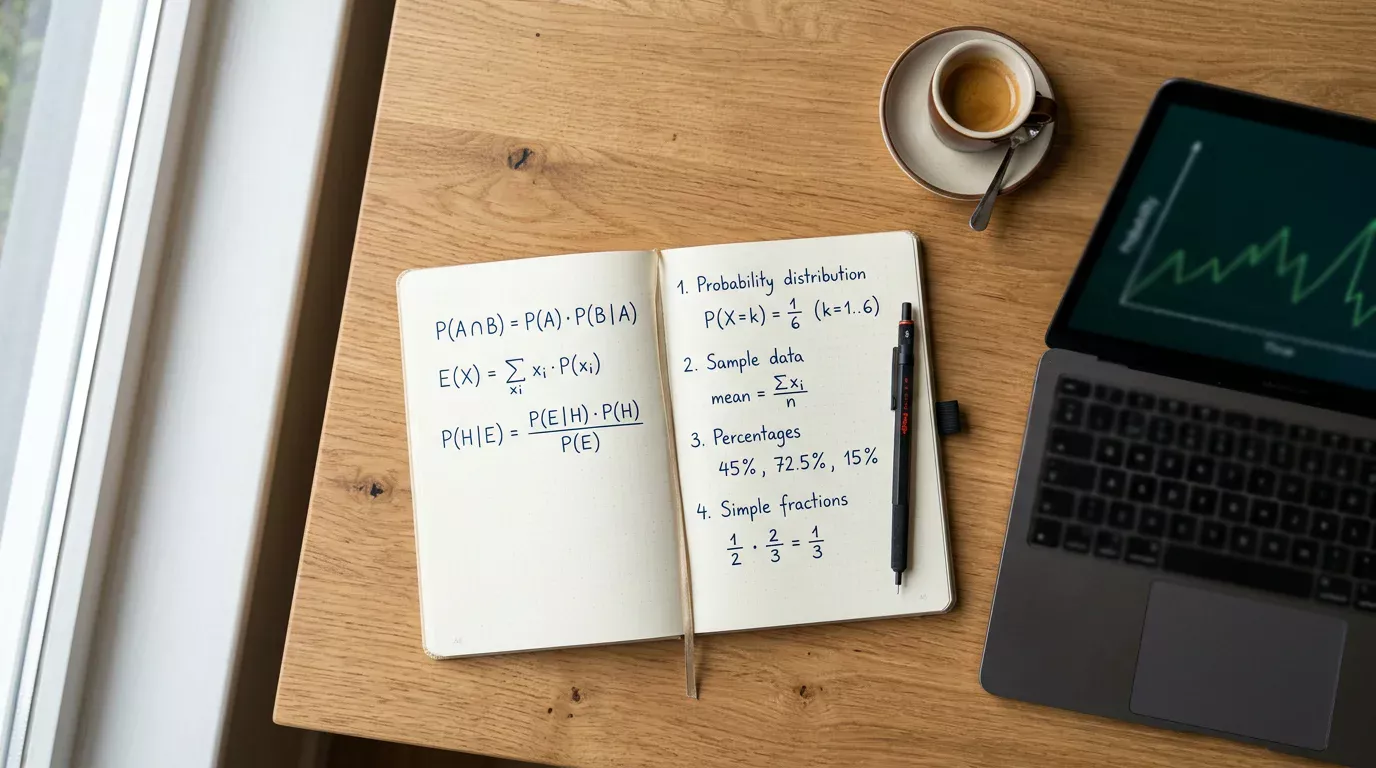 P(A∩B) = P(A) · P(B|A)
E(X) = ∑ xᵢ · P(xᵢ)
xᵢ
P(H|E) = P(E|H) · P(H) / P(E)
1. Probability distribution
P(X=k) = 1/6 (k=1..6)
2. Sample data
mean = ∑xᵢ / n
3. Percentages
45%, 72.5%, 15%
4. Simple fractions
1/2 · 2/3 = 1/3
Probability
Time